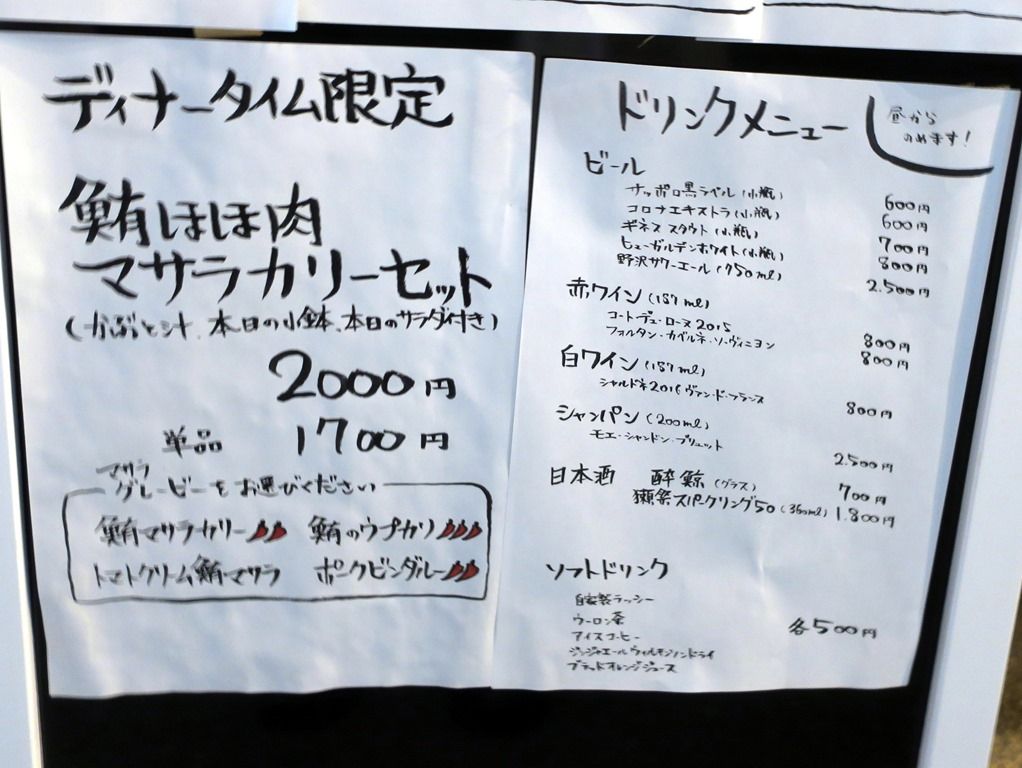 ディナータイム限定
鮪ほほ肉
マサラカリーセット
(かぶと汁、本日の小鉢、本日のサラダ付き)
2000円
単品 1700円
マサラ
グレービーをお選びください
鮪マサラカリー
鮪のウプカリ
トマトクリーム鮪マサラ
ポークビンダルー
ドリンクメニュー
昼から
のめます!
ビール
サッポロ黒ラベル(小瓶) 600円
コロナエキストラ(小瓶) 600円
ギネス スタウト(小瓶) 700円
ヒューガルデンホワイト(小瓶) 800円
野沢サワーエール(750ml) 2.500円
赤ワイン(187ml)
コートデュ・ローヌ2015 800円
フォルタン・カベルネ・ソーヴィニヨン 800円
白ワイン(187ml)
シャルドネ2016ヴァン・ド・フランス 800円
シャンパン(200ml)
モエ・シャンドン・ブリュット 2.500円
日本酒 酔鯨(グラス) 700円
獺祭スパークリング50(360ml) 1.800円
ソフトドリンク
自家製ラッシー
ウーロン茶
アイスコーヒー
ジンジャエールウィルキンソンドライ
ブラッドオレンジジュース
各500円